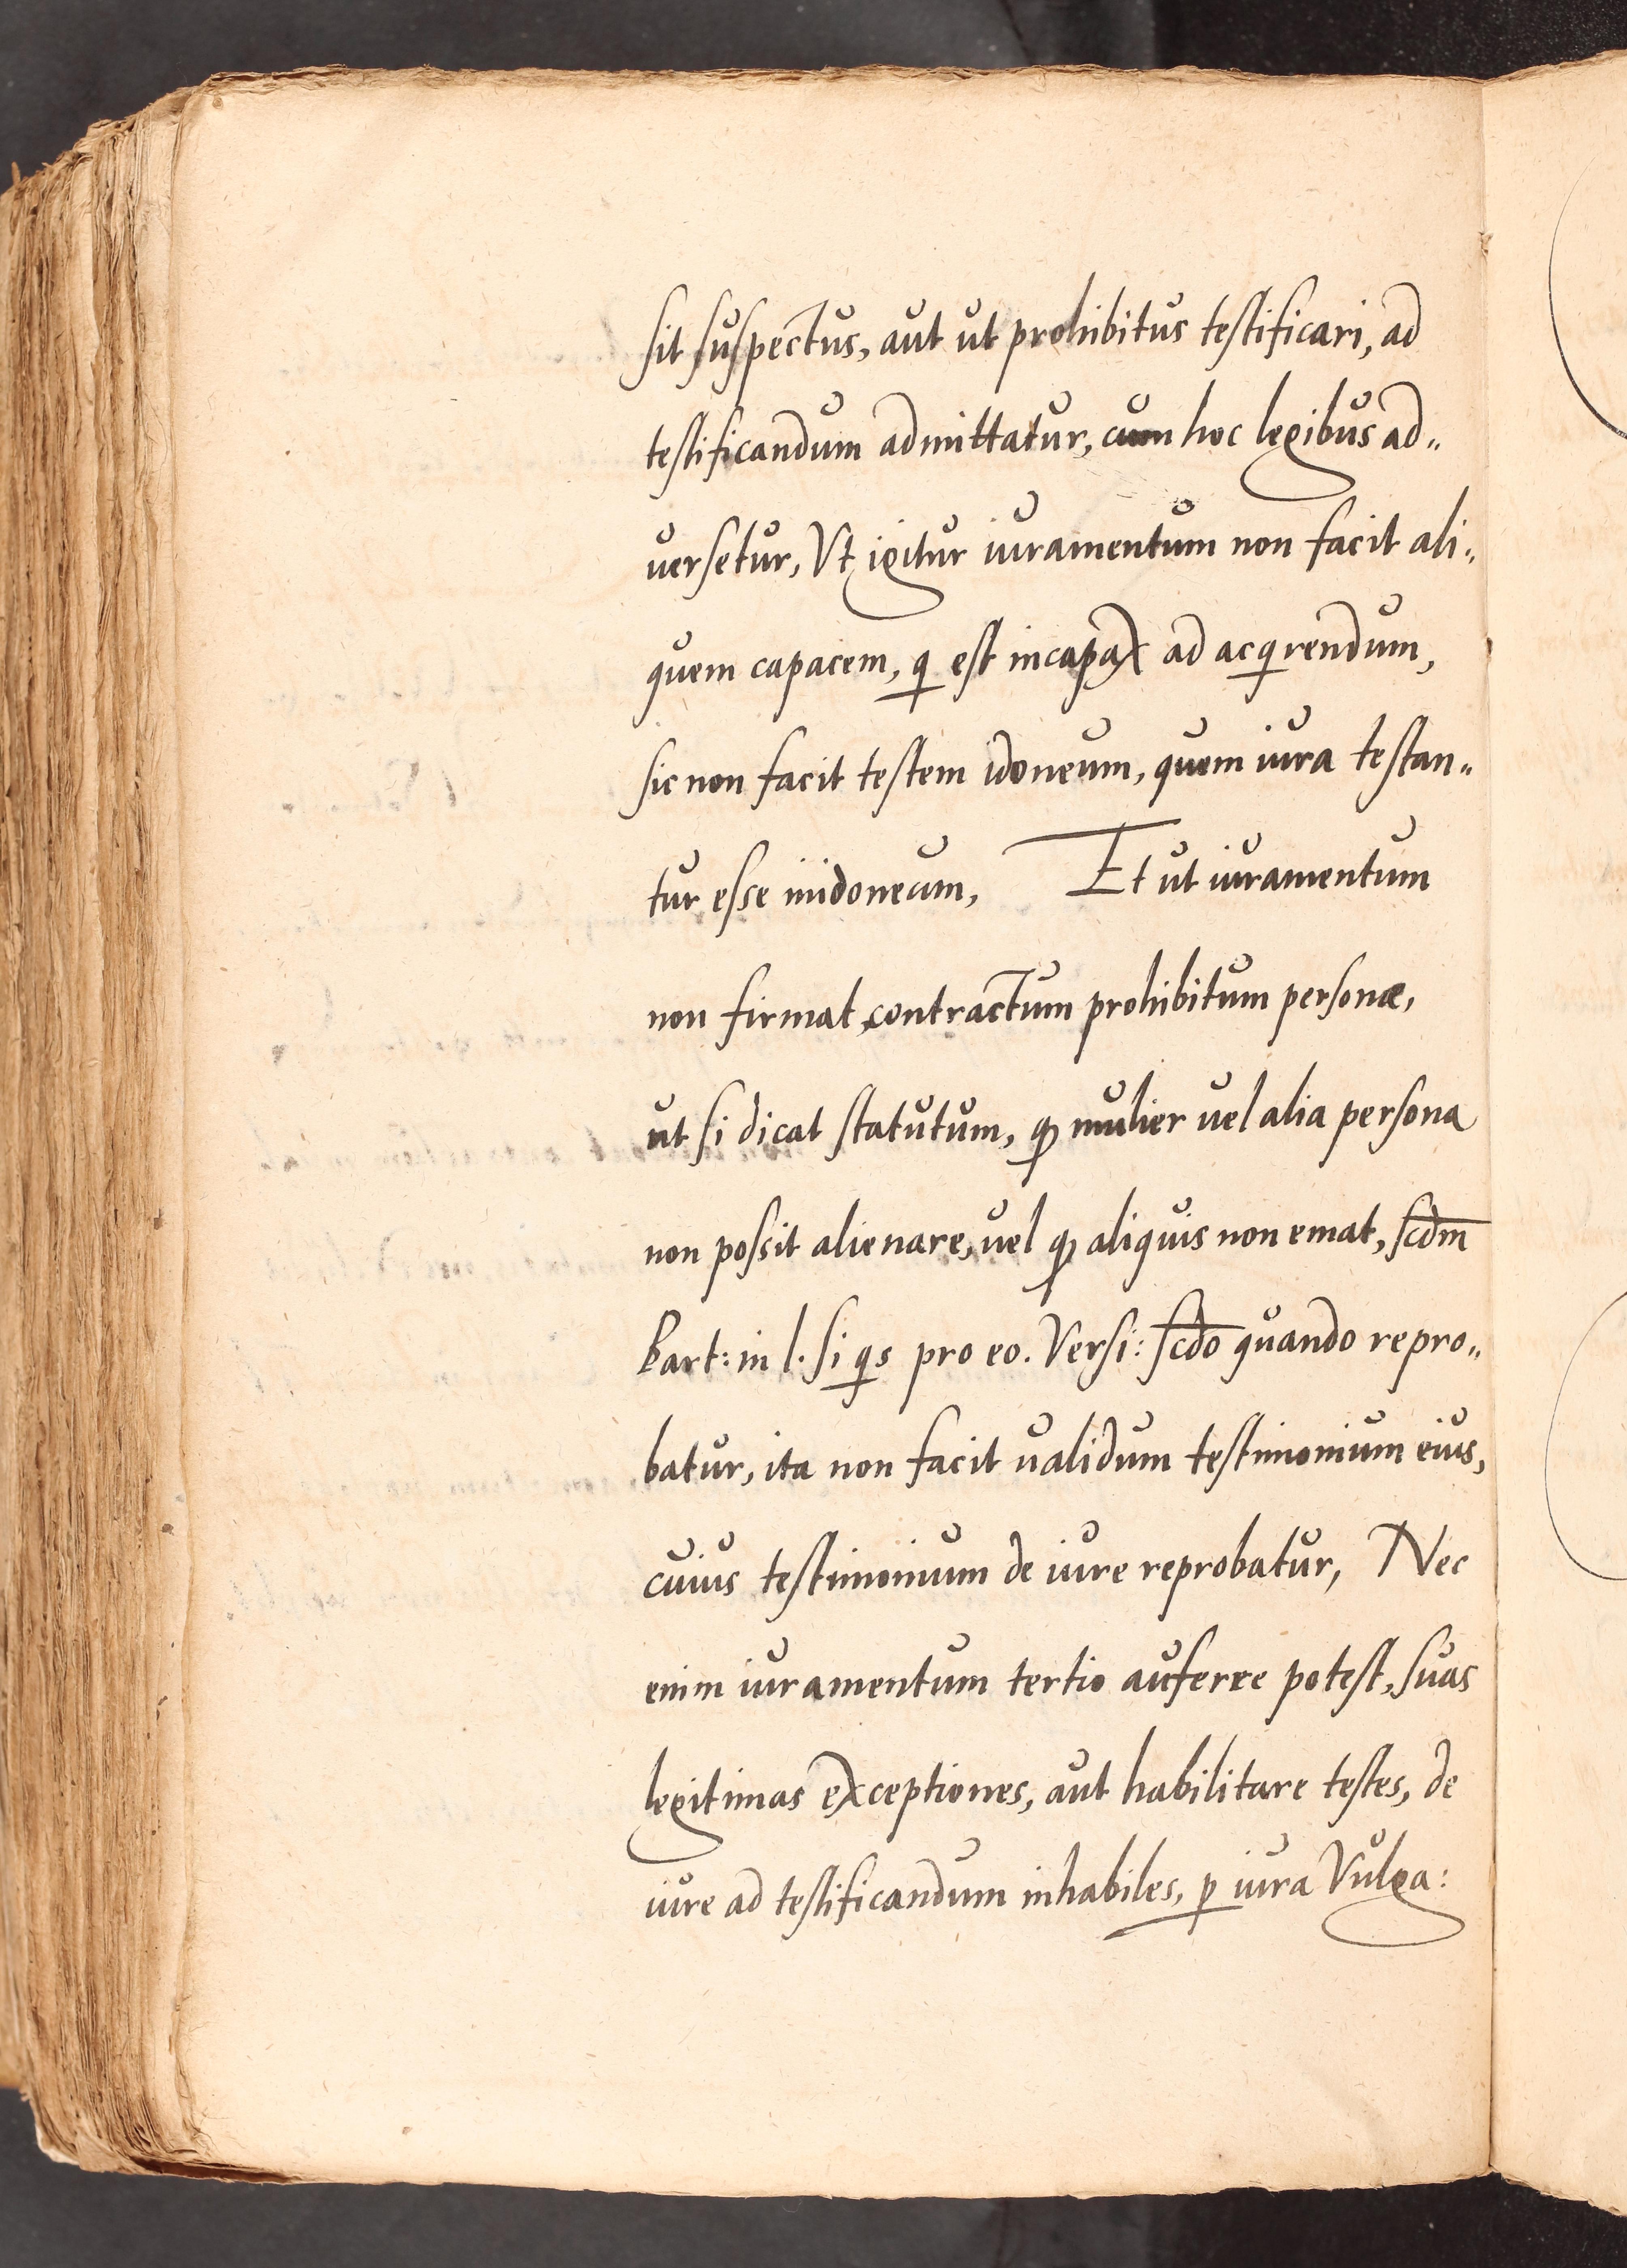 sit suspectus, aut ut prohibitus testificari, ad
testificandum admittatur, cum hoc legibus ad„
versetur, Vt igitur iuramentum non facit ali„
quem capacem, q est incapax ad acqrendum,
sic non facit testem idoneum, quem iura testan„
tur esse inidoneum, Et ut iuramentum
non firmat contractum prohibitum personæ,
ut si dicat statutum, ꝙ mulier uel alia persona
non possit alienare, uel ꝙ aliquis non emat, scdm
Bart: in l. si qs pro eo. Versi: scdo quando repro„
batur, ita non facit validum testimonium eius,
cuius testimonium de iure reprobatur, Nec
enim iuramentum tertio auferre potest, suas
legitimas exceptiones, aut habilitare testes, de
iure ad testificandum inhabiles, ꝑ iura Vulga: